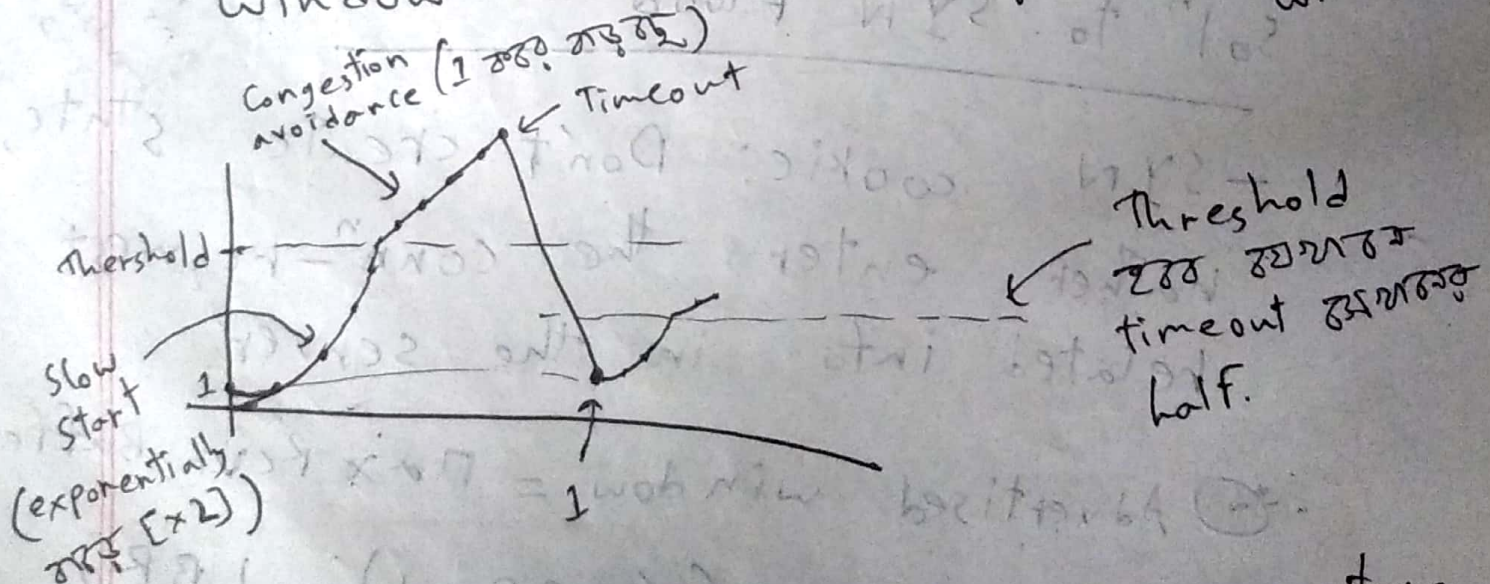 Window
Congestion
avoidance (1 করে বাড়ছে)
Timeout
Thershold
Slow
Start
(exponentially
বাড়ে [x2])
1
1
Threshold
হবে যেখানে
timeout সেখানের
half.